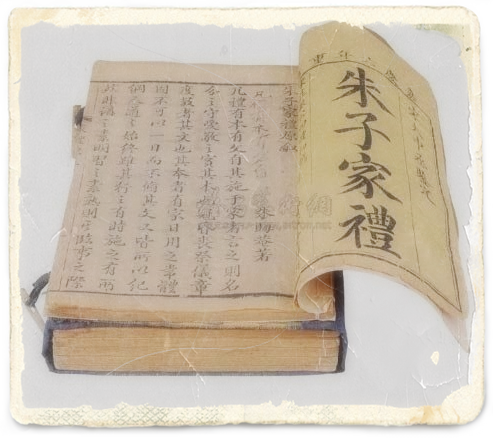 朱子家禮
朱子家禮原敘
朱晦菴著
凡禮有本有文自其施于家者言之則名
分之守愛敬之實其本也冠婚喪祭儀章
度數者其文也其本者有家日用之常體
固不可以一日而不脩其文又皆所以紀
綱人道之始終雖其行之有時施之有所
講之素明習之素熟則其臨事之際